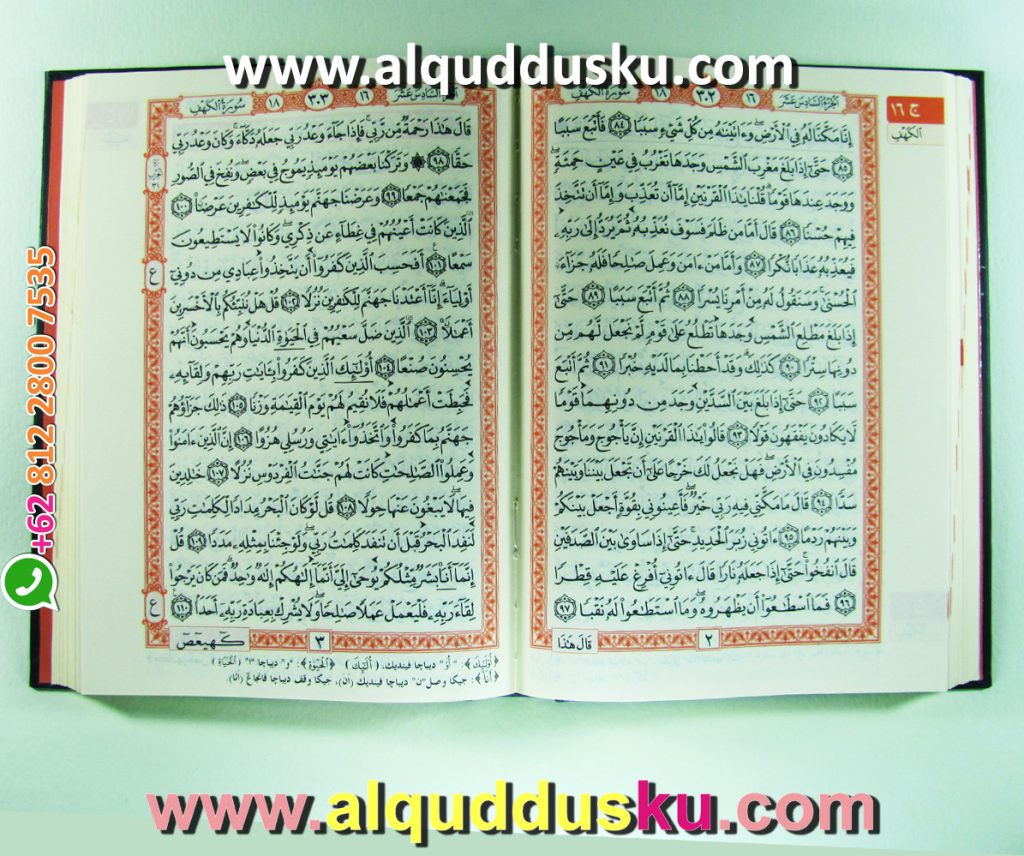 www.alquddusku.com
الجزء السادس عشر ١٦ ٣٠٢ ١٨ سورة الكهف
ج ١٦
الكهف
إِنَّا مَكَّنَّا لَهُ فِي الْأَرْضِ وَءَاتَيْنَٰهُ مِن كُلِّ شَيْءٍ سَبَبًا ٨٤ فَأَتْبَعَ سَبَبًا
٨٥ حَتَّىٰ إِذَا بَلَغَ مَغْرِبَ الشَّمْسِ وَجَدَهَا تَغْرُبُ فِي عَيْنٍ حَمِئَةٍ
وَوَجَدَ عِندَهَا قَوْمًا قُلْنَا يَٰذَا الْقَرْنَيْنِ إِمَّا أَن تُعَذِّبَ وَإِمَّا أَن تَتَّخِذَ
فِيهِمْ حُسْنًا ٨٦ قَالَ أَمَّا مَن ظَلَمَ فَسَوْفَ نُعَذِّبُهُ ثُمَّ يُرَدُّ إِلَىٰ رَبِّهِ
فَيُعَذِّبُهُ عَذَابًا نُّكْرًا ٨٧ وَأَمَّا مَنْ ءَامَنَ وَعَمِلَ صَٰلِحًا فَلَهُ جَزَآءً
الْحُسْنَىٰ وَسَنَقُولُ لَهُ مِنْ أَمْرِنَا يُسْرًا ٨٨ ثُمَّ أَتْبَعَ سَبَبًا ٨٩ حَتَّىٰ
إِذَا بَلَغَ مَطْلِعَ الشَّمْسِ وَجَدَهَا تَطْلُعُ عَلَىٰ قَوْمٍ لَّمْ نَجْعَل لَّهُم مِّن
دُونِهَا سِتْرًا ٩٠ كَذَٰلِكَ وَقَدْ أَحَطْنَا بِمَا لَدَيْهِ خُبْرًا ٩١ ثُمَّ أَتْبَعَ
سَبَبًا ٩٢ حَتَّىٰ إِذَا بَلَغَ بَيْنَ السَّدَّيْنِ وَجَدَ مِن دُونِهِمَا قَوْمًا
لَّا يَكَادُونَ يَفْقَهُونَ قَوْلًا ٩٣ قَالُوا يَٰذَا الْقَرْنَيْنِ إِنَّ يَأْجُوجَ وَمَأْجُوجَ
مُفْسِدُونَ فِي الْأَرْضِ فَهَلْ نَجْعَلُ لَكَ خَرْجًا عَلَىٰ أَن تَجْعَلَ بَيْنَنَا وَبَيْنَهُمْ
سَدًّا ٩٤ قَالَ مَا مَكَّنِّي فِيهِ رَبِّي خَيْرٌ فَأَعِينُونِي بِقُوَّةٍ أَجْعَلْ بَيْنَكُمْ
وَبَيْنَهُمْ رَدْمًا ٩٥ ءَاتُونِي زُبَرَ الْحَدِيدِ حَتَّىٰ إِذَا سَاوَىٰ بَيْنَ الصَّدَفَيْنِ
قَالَ انفُخُوا حَتَّىٰ إِذَا جَعَلَهُ نَارًا قَالَ ءَاتُونِي أُفْرِغْ عَلَيْهِ قِطْرًا
٩٦ فَمَا اسْطَٰعُوا أَن يَظْهَرُوهُ وَمَا اسْتَطَٰعُوا لَهُ نَقْبًا ٩٧
٢
قَالَ هَٰذَا
السادس عشر ١٦ ٣٠٣ ١٨ سورة الكهف
قَالَ هَٰذَا رَحْمَةٌ مِّن رَّبِّي فَإِذَا جَآءَ وَعْدُ رَبِّي جَعَلَهُ دَكَّآءَ وَكَانَ وَعْدُ رَبِّي
حَقًّا ٩٨ ۞ وَتَرَكْنَا بَعْضَهُمْ يَوْمَئِذٍ يَمُوجُ فِي بَعْضٍ وَنُفِخَ فِي الصُّورِ
فَجَمَعْنَٰهُمْ جَمْعًا ٩٩ وَعَرَضْنَا جَهَنَّمَ يَوْمَئِذٍ لِّلْكَٰفِرِينَ عَرْضًا ١٠٠
الَّذِينَ كَانَتْ أَعْيُنُهُمْ فِي غِطَآءٍ عَن ذِكْرِي وَكَانُوا لَا يَسْتَطِيعُونَ
سَمْعًا ١٠١ أَفَحَسِبَ الَّذِينَ كَفَرُوا أَن يَتَّخِذُوا عِبَادِي مِن دُونِي
أَوْلِيَآءَ إِنَّا أَعْتَدْنَا جَهَنَّمَ لِلْكَٰفِرِينَ نُزُلًا ١٠٢ قُلْ هَلْ نُنَبِّئُكُم بِالْأَخْسَرِينَ
أَعْمَٰلًا ١٠٣ الَّذِينَ ضَلَّ سَعْيُهُمْ فِي الْحَيَوٰةِ الدُّنْيَا وَهُمْ يَحْسَبُونَ أَنَّهُمْ
يُحْسِنُونَ صُنْعًا ١٠٤ أُولَٰئِكَ الَّذِينَ كَفَرُوا بِـَٔايَٰتِ رَبِّهِمْ وَلِقَآئِهِ
فَحَبِطَتْ أَعْمَٰلُهُمْ فَلَا نُقِيمُ لَهُمْ يَوْمَ الْقِيَٰمَةِ وَزْنًا ١٠٥ ذَٰلِكَ جَزَآؤُهُمْ
جَهَنَّمُ بِمَا كَفَرُوا وَاتَّخَذُوا ءَايَٰتِي وَرُسُلِي هُزُوًا ١٠٦ إِنَّ الَّذِينَ ءَامَنُوا
وَعَمِلُوا الصَّٰلِحَٰتِ كَانَتْ لَهُمْ جَنَّٰتُ الْفِرْدَوْسِ نُزُلًا ١٠٧ خَٰلِدِينَ
فِيهَا لَا يَبْغُونَ عَنْهَا حِوَلًا ١٠٨ قُل لَّوْ كَانَ الْبَحْرُ مِدَادًا لِّكَلِمَٰتِ رَبِّي
لَنَفِدَ الْبَحْرُ قَبْلَ أَن تَنفَدَ كَلِمَٰتُ رَبِّي وَلَوْ جِئْنَا بِمِثْلِهِ مَدَدًا ١٠٩ قُلْ
إِنَّمَا أَنَا بَشَرٌ مِّثْلُكُمْ يُوحَىٰ إِلَيَّ أَنَّمَا إِلَٰهُكُمْ إِلَٰهٌ وَٰحِدٌ فَمَن كَانَ يَرْجُوا
لِقَآءَ رَبِّهِ فَلْيَعْمَلْ عَمَلًا صَٰلِحًا وَلَا يُشْرِكْ بِعِبَادَةِ رَبِّهِ أَحَدًا ١١٠
ع
ع
٣
كهيعص
﴿أُولَٰئِكَ﴾: "أُوْ" ديباچا فينديك، (أُلَٰئِكَ) ﴿الْحَيَوٰةِ﴾: "و" ديباچا "ا" (الْحَيَاةِ)
﴿أَنَا﴾: جيكا وصل "ن" ديباچا فينديك (أَنَ)، جيكا وقف ديباچا فانجاڠ (أَنَا).
+62 812 2800 7535
www.alquddusku.com